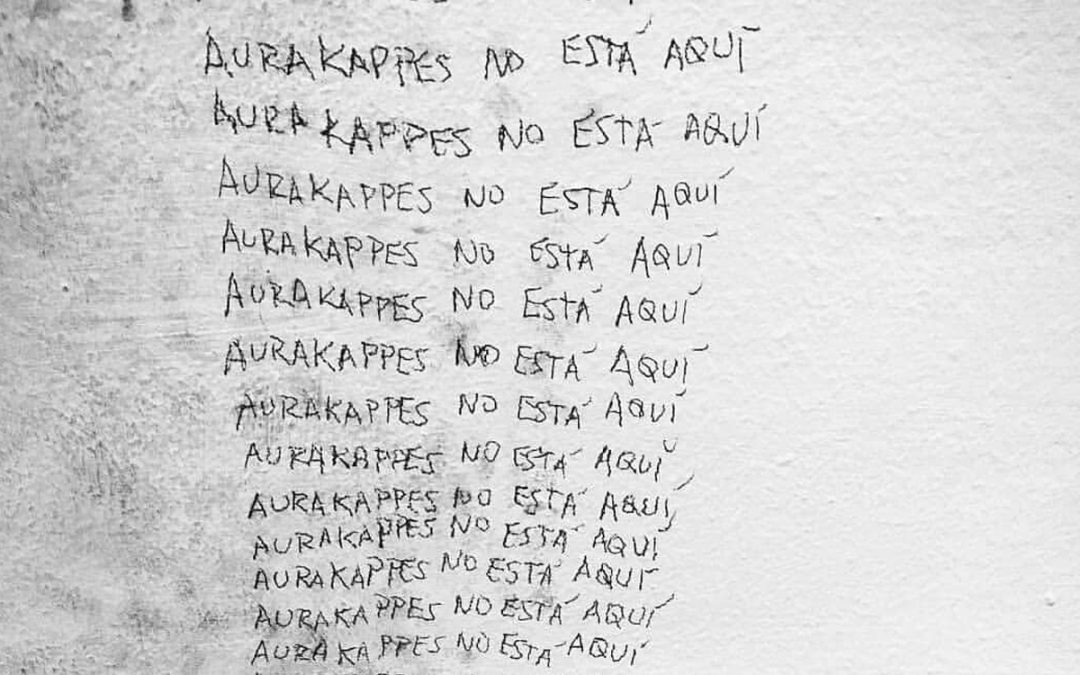 AURA KAPPES NO ESTÁ AQUÍ
AURA KAPPES NO ESTÁ AQUÍ
AURA KAPPES NO ESTÁ AQUÍ
AURA KAPPES NO ESTÁ AQUÍ
AURA KAPPES NO ESTÁ AQUÍ
AURA KAPPES NO ESTÁ AQUÍ
AURA KAPPES NO ESTÁ AQUÍ
AURA KAPPES NO ESTÁ AQUÍ
AURA KAPPES NO ESTÁ AQUÍ
AURA KAPPES NO ESTÁ AQUÍ
AURA KAPPES NO ESTÁ AQUÍ
AURA KAPPES NO ESTÁ AQUÍ
AURA KAPPES NO ESTÁ AQUÍ